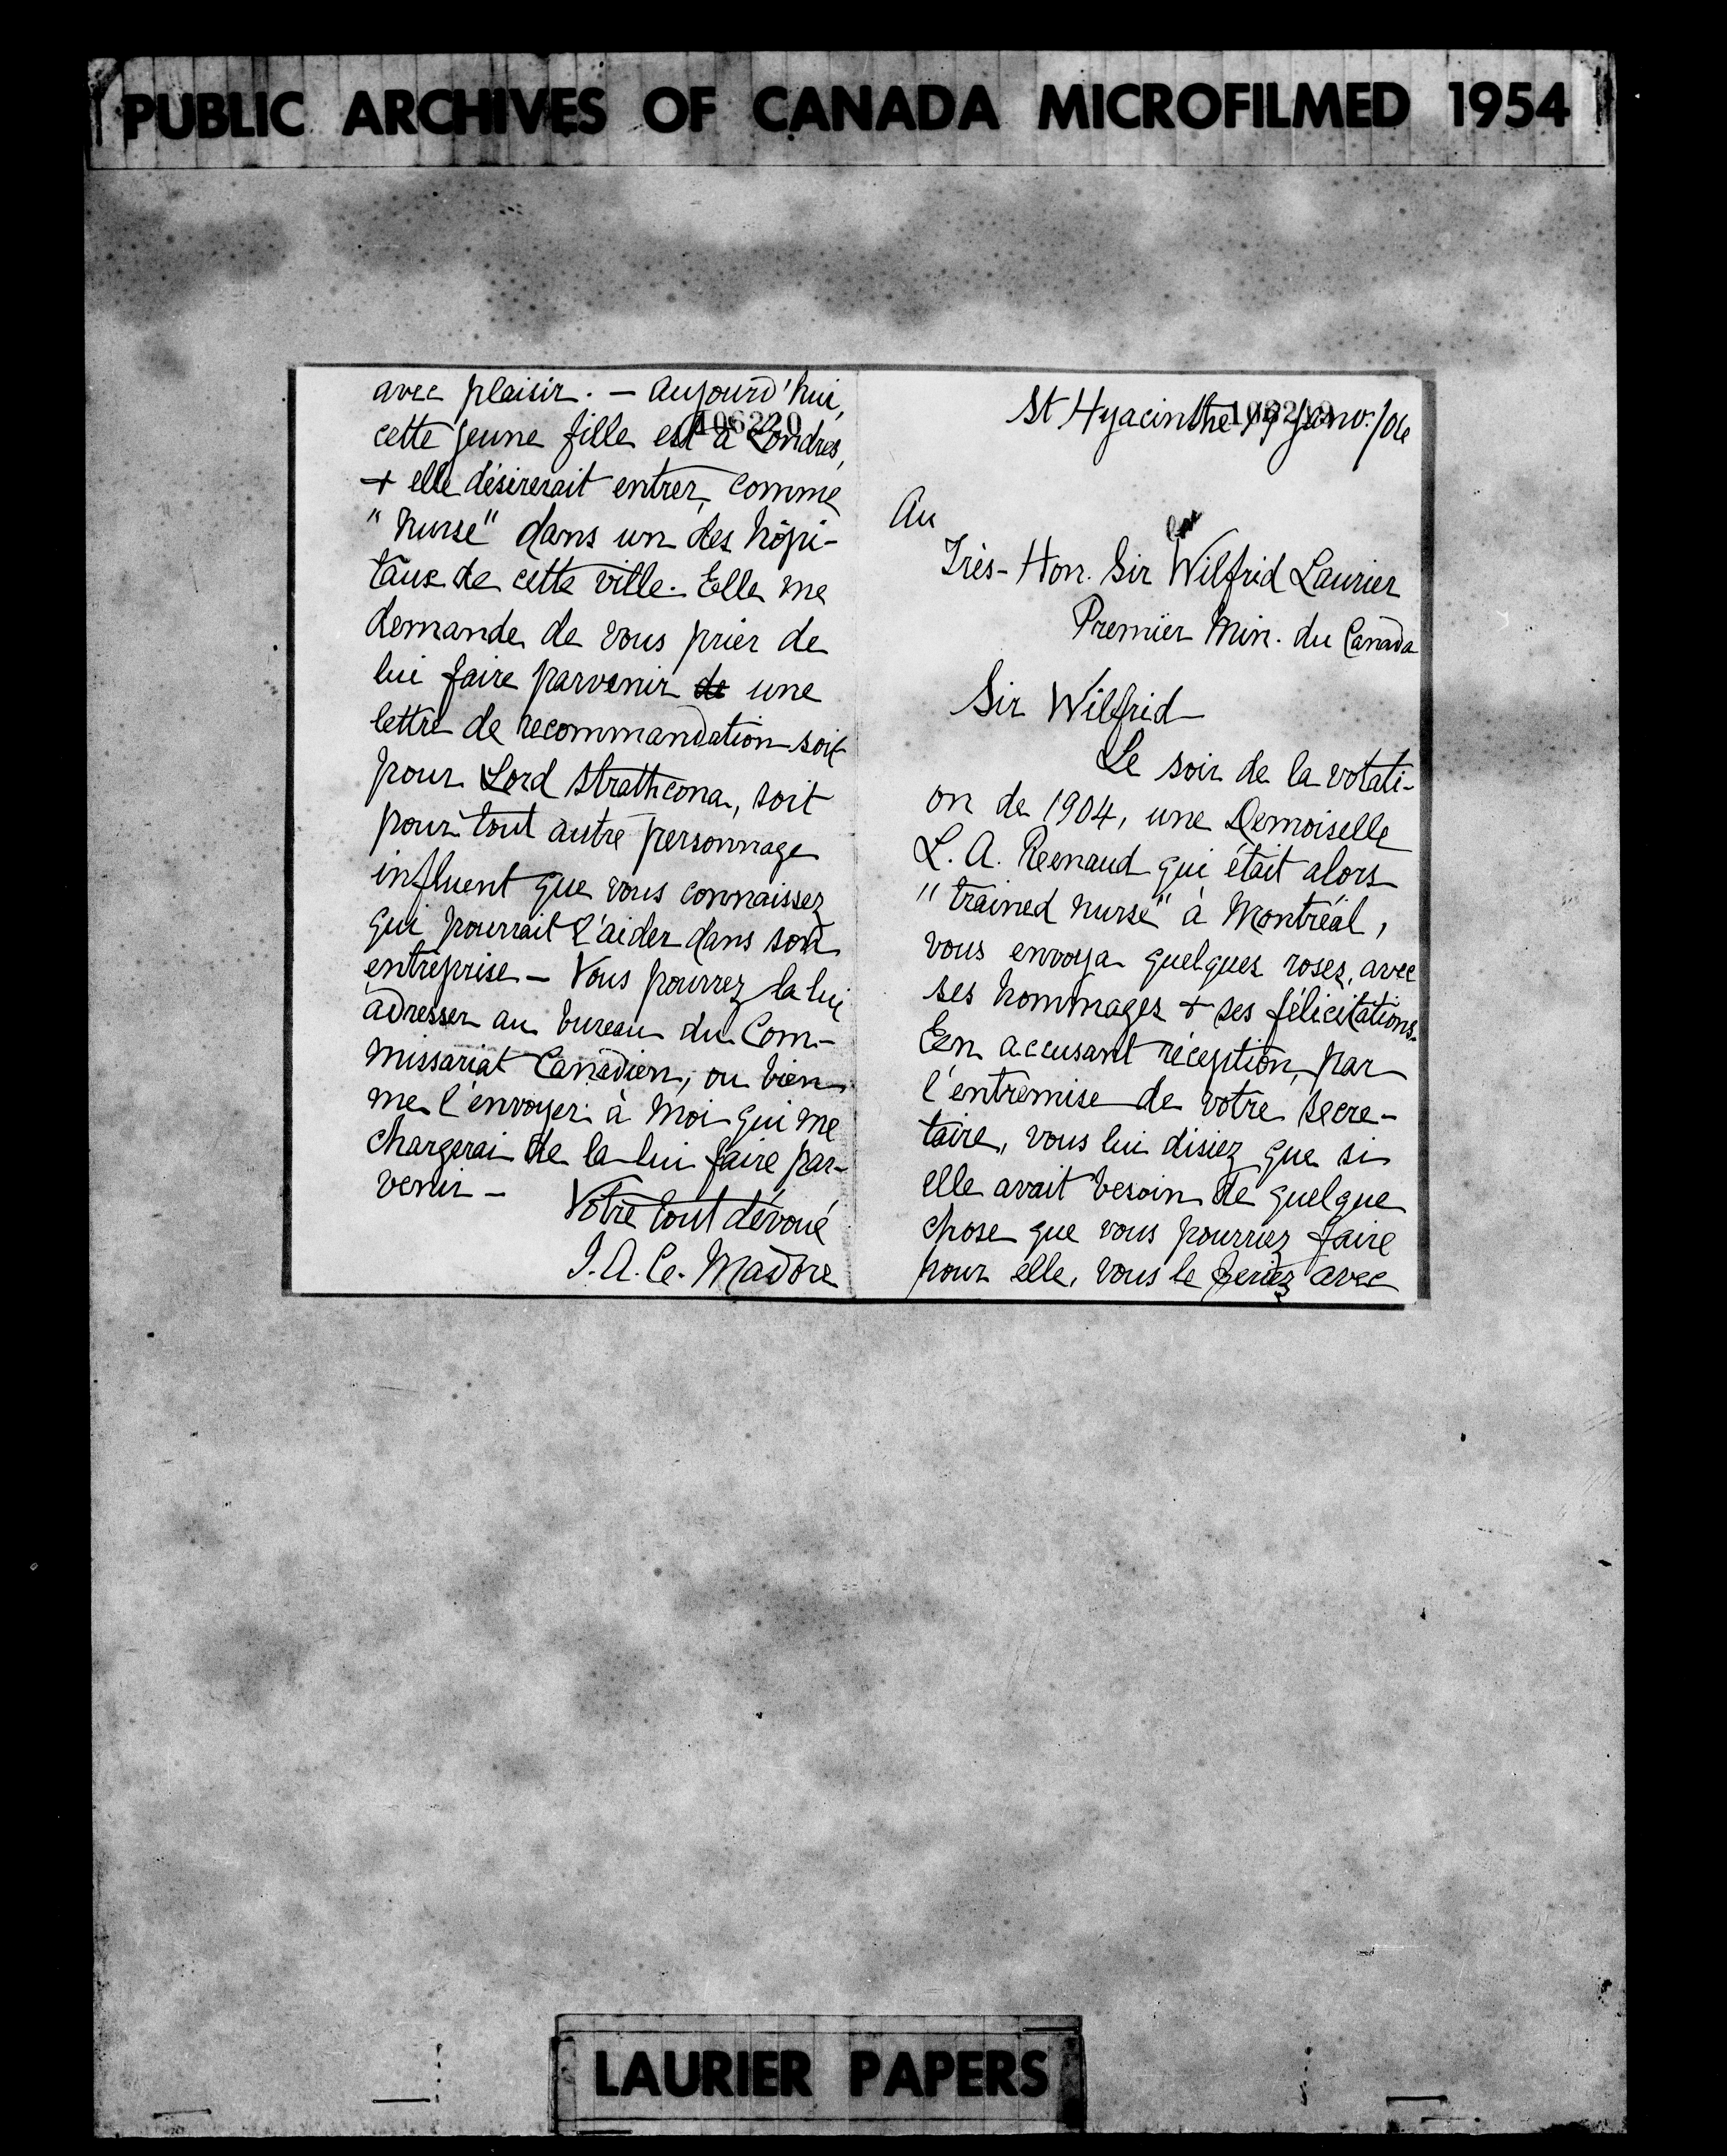 PUBLIC ARCHIVES OF CANADA MICROFILMED 1954
St Hyacinthe janv. /06
Au
Très-Hon. Sir Wilfrid Laurier
Premier Min. du Canada
Sir Wilfrid
Le soir de la votati-
on de 1904, une Demoiselle
L. A. Reenaud qui était alors
"trained nurse" à Montréal,
vous envoya quelques roses, avec
ses hommages + ses félicitations.
En accusant réception, par
l'entremise de votre secre-
taire, vous lui disiez que si
elle avait besoin de quelque
chose que vous pourriez faire
pour elle, vous le feriez avec
106220
avec plaisir. — Aujourd'hui,
cette jeune fille est à Londres,
+ elle désirerait entrer, comme
"nurse" dans un des hôpi-
taux de cette ville. Elle me
demande de vous prier de
lui faire parvenir de une
lettre de recommandation soit
pour Lord Strathcona, soit
pour tout autre personnage
influent que vous connaissez
qui pourrait l'aider dans son
entreprise — Vous pourrez la lui
adresser au bureau du Com-
missariat Canadien, ou bien
me l'envoyer à moi qui me
chargerai de la lui faire par-
venir —
Votre tout dévoué
J. A. C. Madore
LAURIER PAPERS